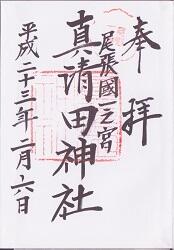 奉拝
尾張國一之宮
真清田神社
平成二十三年二月六日